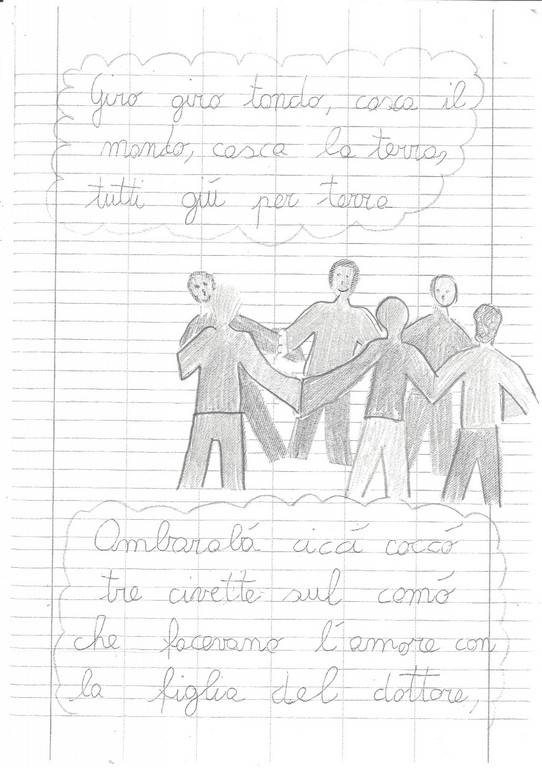 Giro giro tondo, casca il
mondo, casca la terra,
tutti giú per terra
Ambarabá cicí coccó
tre civette sul comó
che facevano l'amore con
la figlia del dottore,